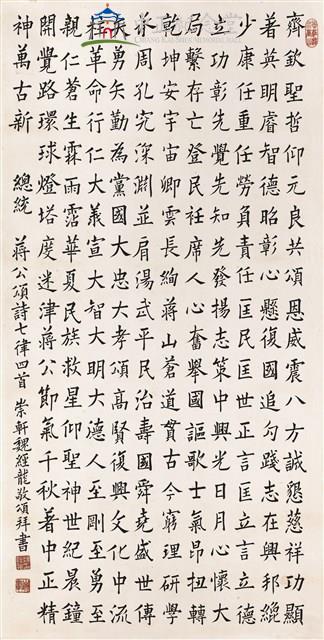 齊欽聖哲仰元良共頌恩威震八方誠懇慈祥功顯
著英明睿智德昭彰心懸復國追勾踐志在興邦
少康任重任勞負責任匡民匡世正言匡立言立德
立功彰先覺先知先發揚志策中興光日月心懷大
局繫存亡登民衽席人心奮舉國謳歌士氣昂扭轉
乾坤安宇宙卿雲長絢蔣山蒼道貫古今窮理研學
術周孔究深淵並肩湯武平民治壽國舜堯盛世傳
大勇矢勤為黨國大忠大孝頌高賢復興文化中流
革命行仁大義宣大智大明大德人至剛至勇至
親仁蒼生霖雨霑華夏民族救星仰聖神世紀晨鐘
開覺路環球燈塔度迷津蔣公節氣千秋著中正精
神萬古新 總統 蔣公頌詩七律四首 崇軒魏經龍敬頌拜書